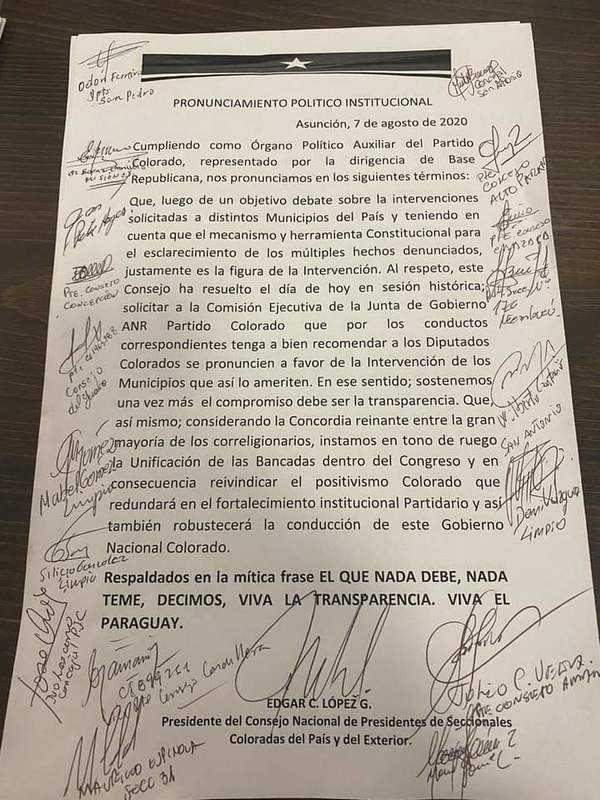 PRONUNCIAMIENTO POLITICO INSTITUCIONAL
Asunción, 7 de agosto de 2020
Cumpliendo como Órgano Político Auxiliar del Partido
Colorado, representado por la dirigencia de Base
Republicana, nos pronunciamos en los siguientes términos:
Que, luego de un objetivo debate sobre la intervenciones
solicitadas a distintos Municipios del País y teniendo en
cuenta que el mecanismo y herramienta Constitucional para
el esclarecimiento de los múltiples hechos denunciados,
justamente es la figura de la Intervención. Al respeto, este
Consejo ha resuelto el día de hoy en sesión histórica;
solicitar a la Comisión Ejecutiva de la Junta de Gobierno
ANR Partido Colorado que por los conductos
correspondientes tenga a bien recomendar a los Diputados
Colorados se pronuncien a favor de la Intervención de los
Municipios que así lo ameriten. En ese sentido; sostenemos
una vez más el compromiso debe ser la transparencia. Que,
así mismo; considerando la Concordia reinante entre la gran
mayoría de los correligionarios, instamos en tono de ruego
la Unificación de las Bancadas dentro del Congreso y en
consecuencia reivindicar el positivismo Colorado que
redundará en el fortalecimiento institucional Partidario y así
también robustecerá la conducción de este Gobierno
Nacional Colorado.
Respaldados en la mítica frase EL QUE NADA DEBE, NADA
TEME, DECIMOS, VIVA LA TRANSPARENCIA. VIVA EL
PARAGUAY.
EDGAR C. LÓPEZ G.
Presidente del Consejo Nacional de Presidentes de Seccionales
Coloradas del País y del Exterior.
Odón
San Pedro
San Antonio
MISIONES
PTE. CONSEJO
CONCEPCIÓN
Consejo
PTE
CONSEJO
ALTO PARANÁ
PTE. CONSEJO
SAN ANTONIO
Limpio
Limpio
Silicio Gonzalez
Limpio
Jose
Concejal PJC
Consejo Cordillera
MAURICIO ESPINOLA
SECC 31
PTE CONSEJO